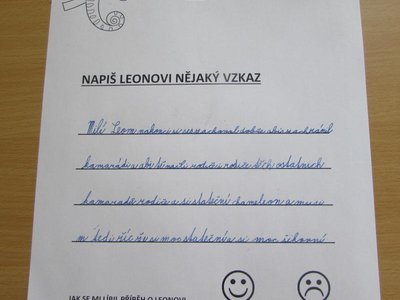 NAPIŠ LEONOVI NĚJAKÝ VZKAZ
Milí Leom nakonci si se zachoval dobře abis zachránil
kamarádi a abi tí našli rodiče i rodiče těch ostatnech
kamaradě rodiče a si statečni kameleon a musi
m tedi říc že si moc statečni a si moc šikovni
JAK SE MI LÍBIL PŘÍBĚH O LEONOVI